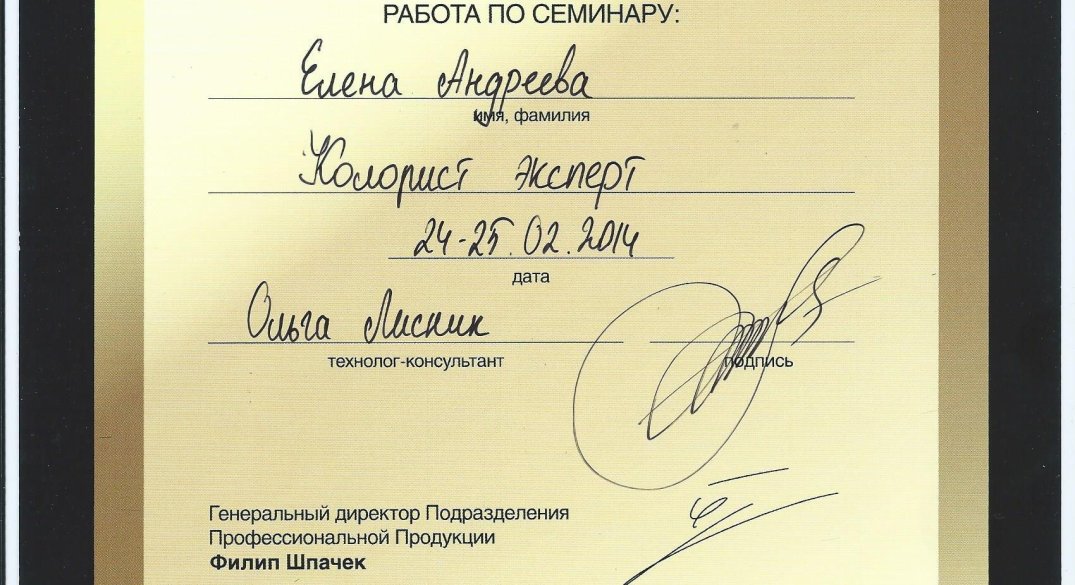 РАБОТА ПО СЕМИНАРУ:
Елена Андреева
имя, фамилия
Колорист эксперт
24-25.02.2014
дата
Ольга Лисник
технолог-консультант
подпись
Генеральный директор Подразделения
Профессиональной Продукции
Филип Шпачек